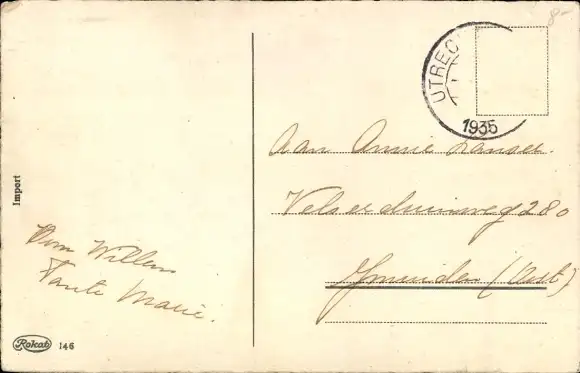 UTREC
1935
Aan Annie Lanser.
Velserduinweg 280
IJmuiden (Oost)
Oom Willem
Tante Marie.
Import
Rokat 146
8-